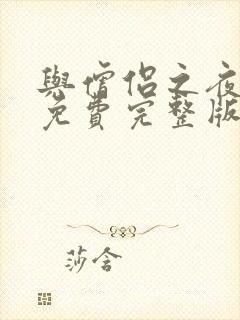 與僧侶之夜
免費完整版
莎含